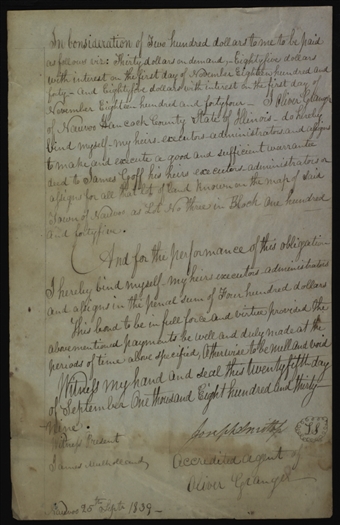 In consideration of Two hundred dollars to me to be paid
as follows viz: Thirty dollars on demand, Eightyfive dollars
with interest on the first day of November Eighteen hundred and
forty - And Eightyfive dollars with interest on the first day of
November Eighteen hundred and fortyfour - I Oliver Granger
of Nauvoo Hancock County State of Illinois - do hereby
bind myself - my heirs executors administrators and assigns
to make and execute a good and sufficient warrantee
deed to James Goff his heirs executors administrators or
assigns for all that lot of land known on the map of said
Town of Nauvoo as Lot No three in Block One hundred
and fortyfive.
And for the performance of this obligation
I hereby bind myself - my heirs executors - administrators
and assigns in the penal sum of Four hundred dollars
This bond to be in full force and virtue provided the
abovementioned payments be well and duly made at the
periods of time above specified, Otherwise to be null and void
Witness my hand and seal this twentyfifth day
of September One thousand Eight hundred and thirty
Nine.
Witness Present
Joseph Smith
James
Accredited agent of
Oliver Granger
Nauvoo 25th Sept. 1839-